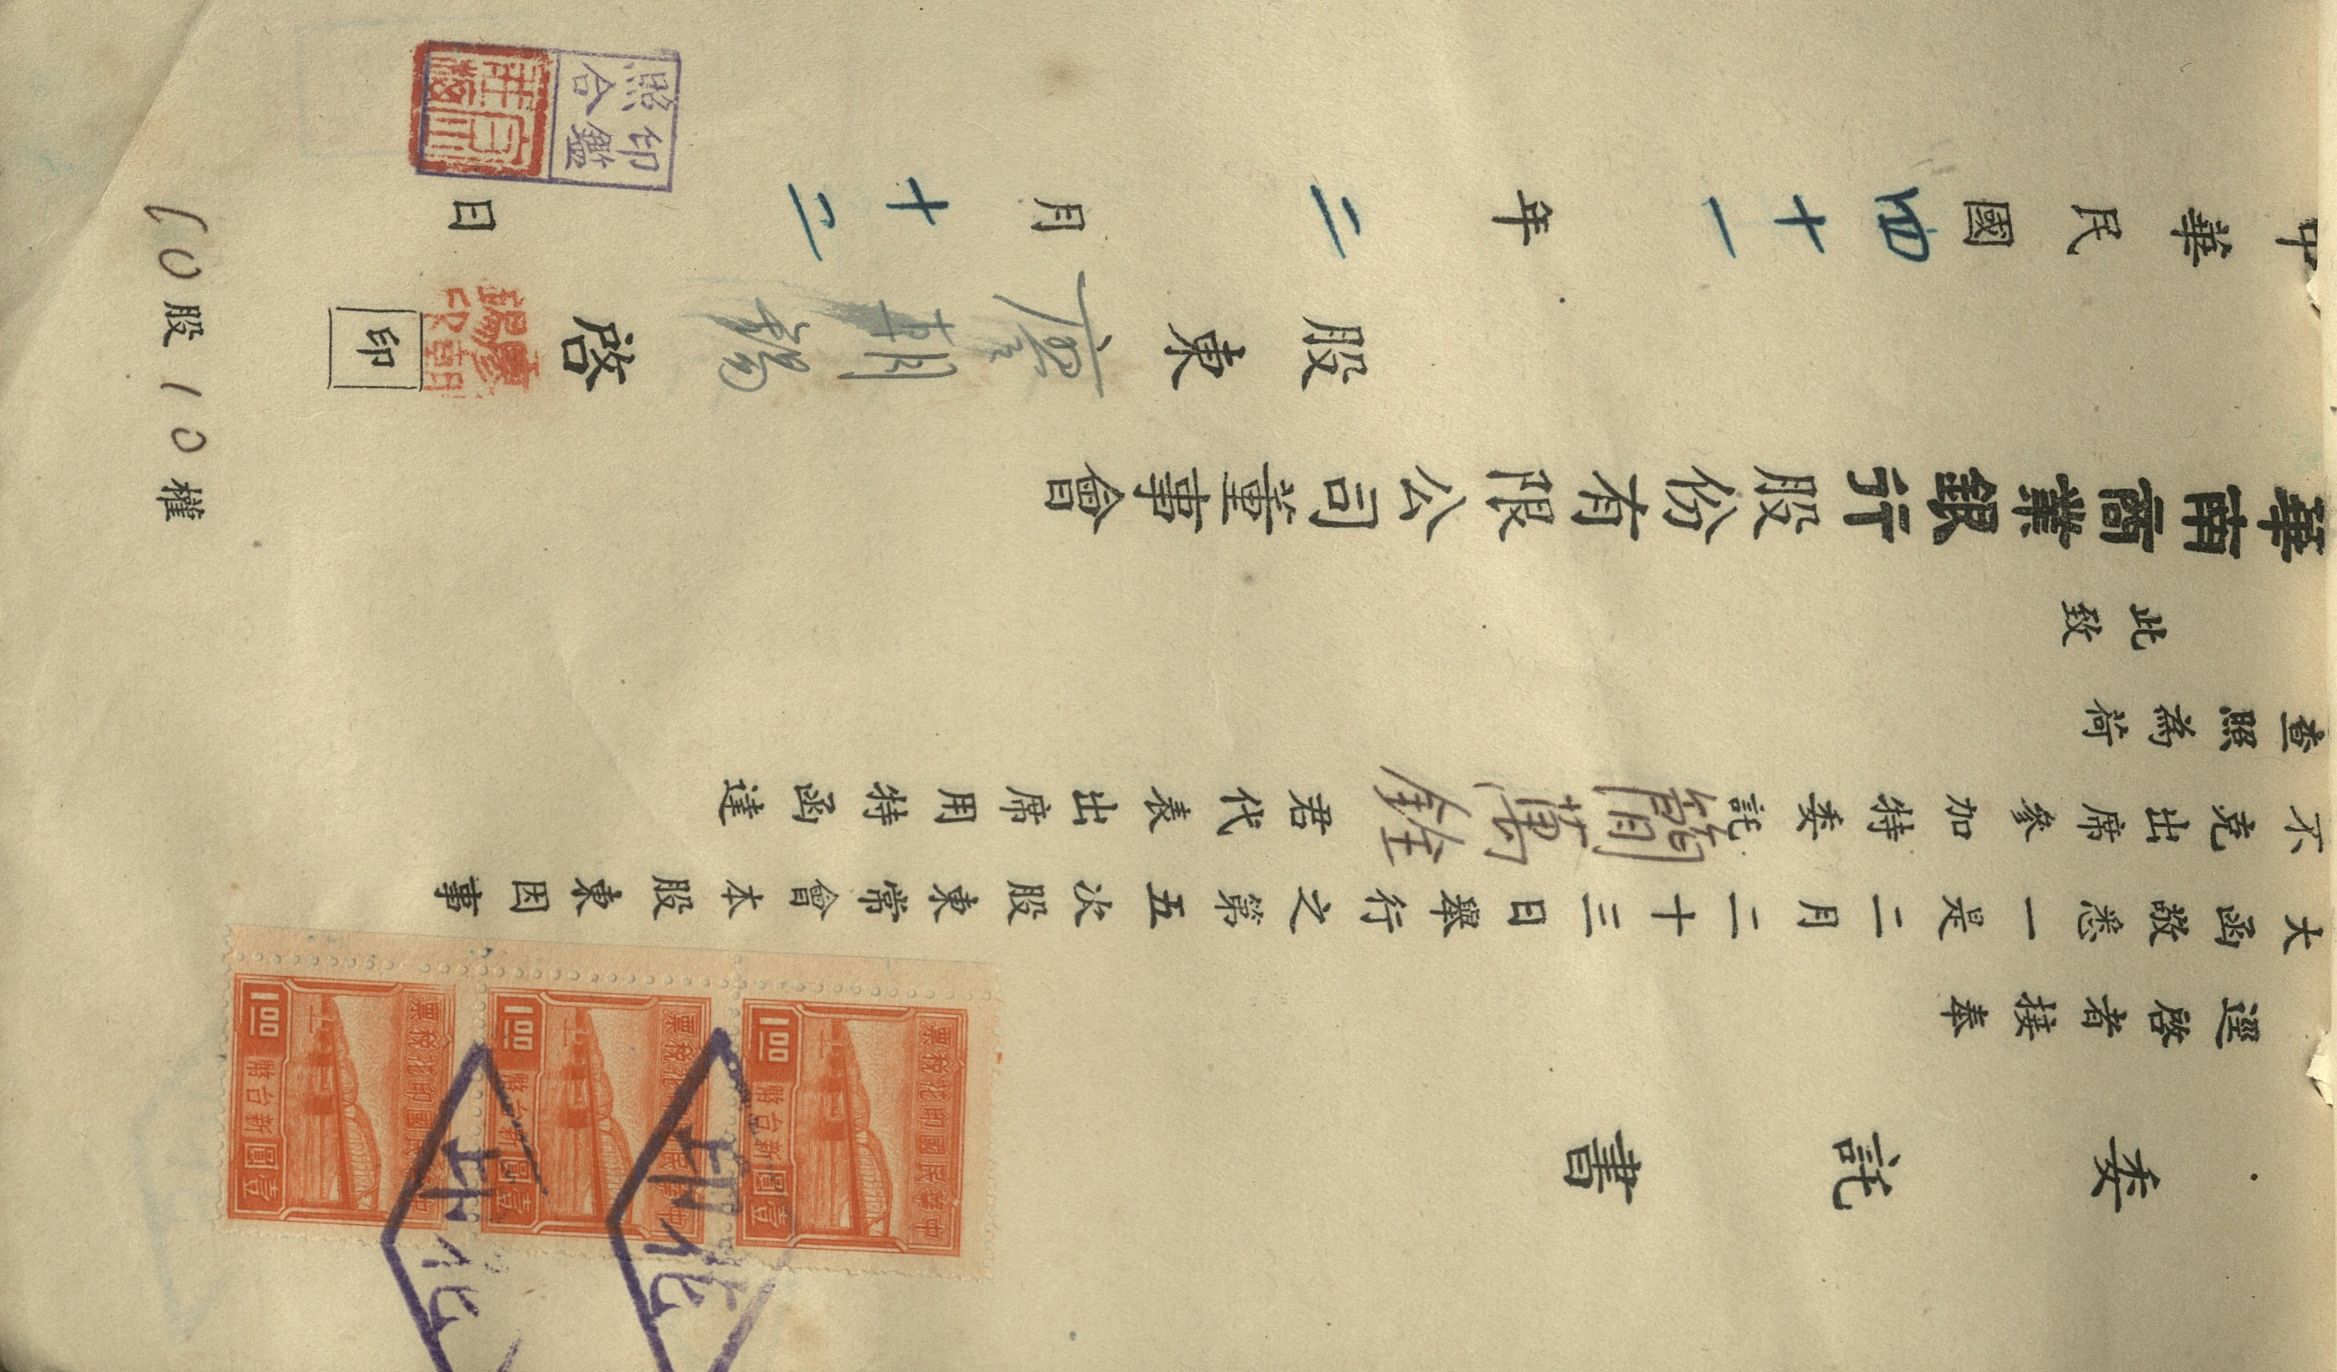 委託書
逕啓者接奉
大函敬悉一是二月二十三日舉行之第五次股東常會本股東因事
不克出席參加特委託簡萬銓君代表出席用特函達
查照為荷
此致
華南商業銀行股份有限公司董事會
股東廖朝錫啓 印
廖朝錫印
中華民國四十一年二月十二日
印鑑照合
10股10權
中華民國印花稅票
壹圓 新台幣 1.00
中華民國印花稅票
壹圓 新台幣 1.00
中華民國印花稅票
壹圓 新台幣 1.00